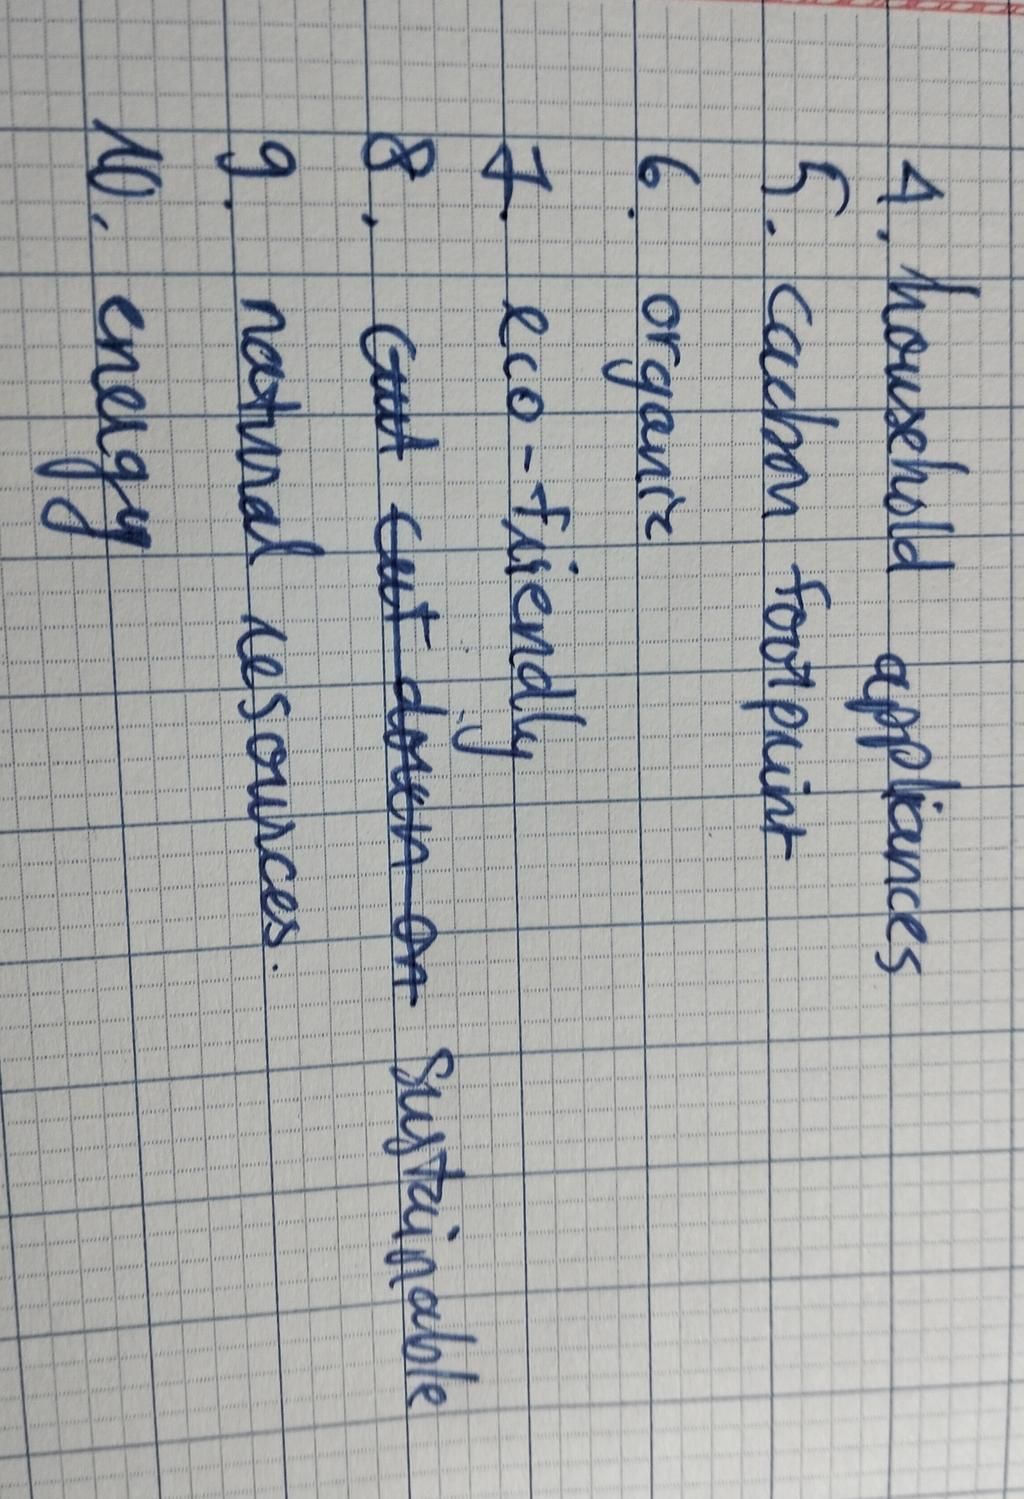 4. household appliances
5. carbon footprint
6. organic
7. eco-friendly
8. Cut cut down on sustainable
9. natural resources.
10. energy